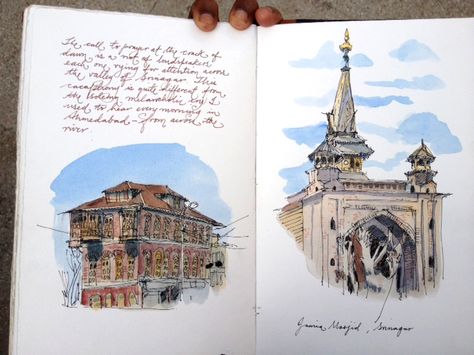 The call to prayer at the crack of
dawn is a riot of loudspeakers
each one vying for attention across
the valley of Srinagar. This
cacophony is quite different from
the lilting melancholic cry I
used to hear every morning in
Ahmedabad - from across the
river.
Jamia Masjid, Srinagar